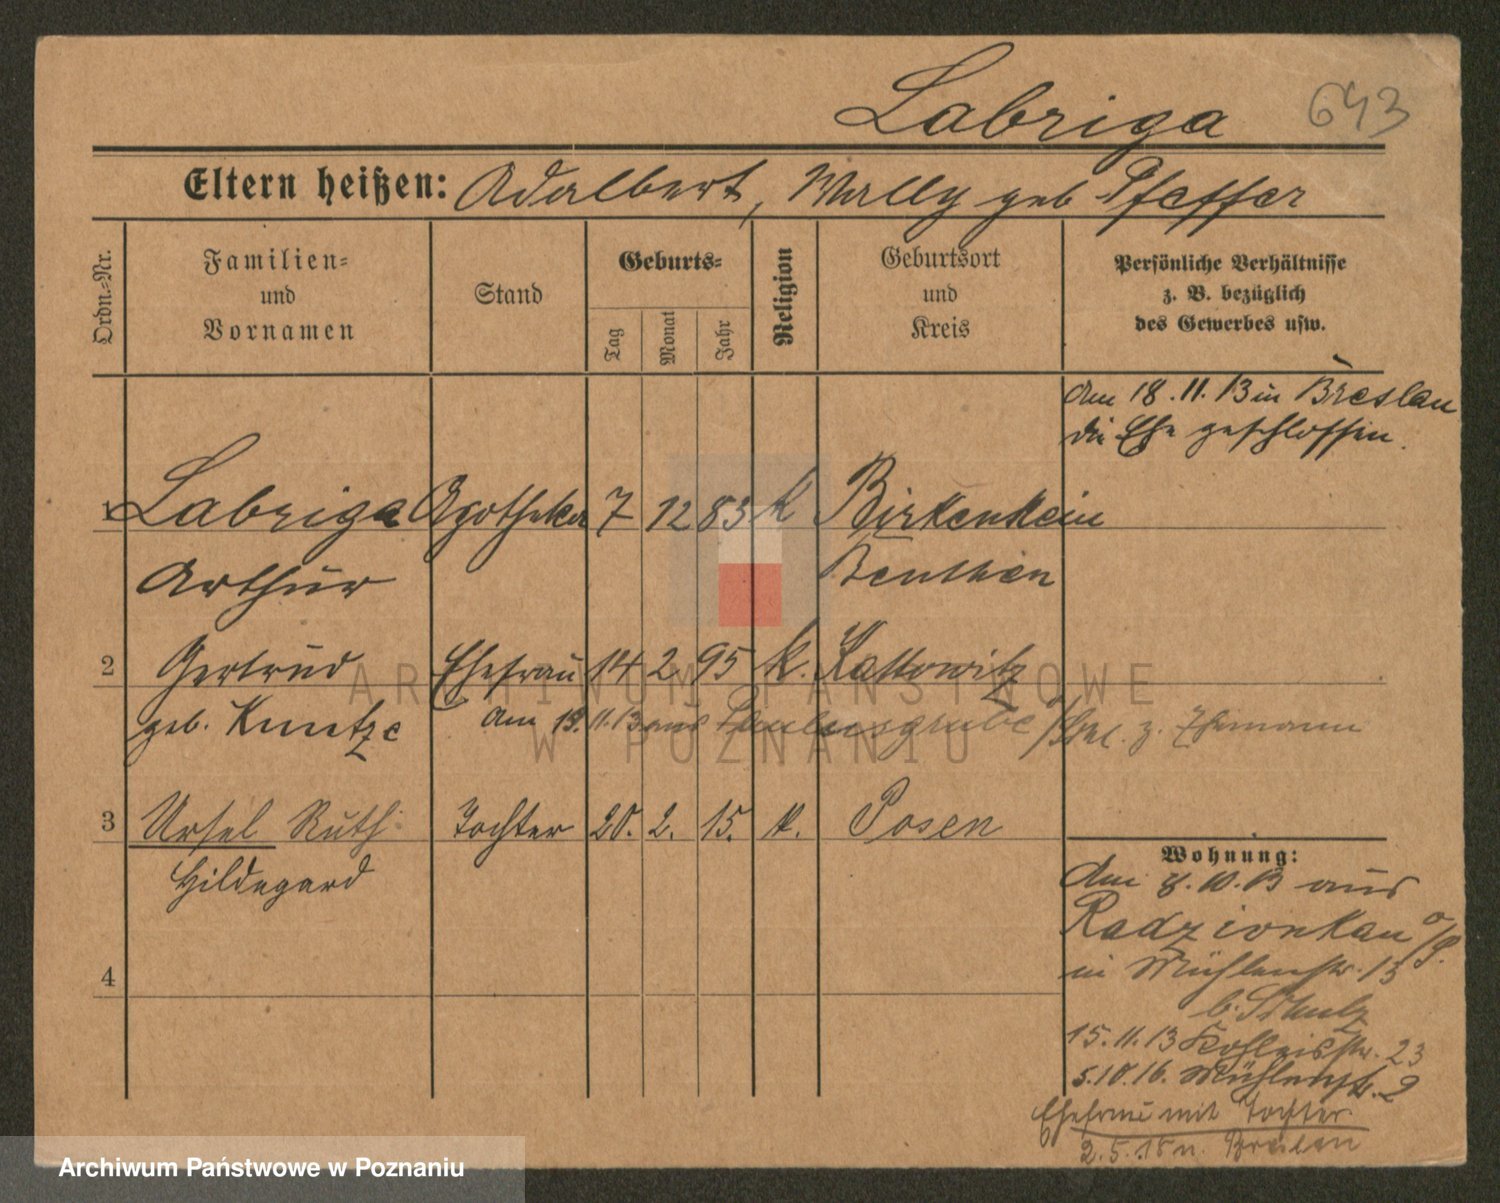 Labriga 643
Eltern heißen: Adalbert, Wally geb Pfeffer
Ordn.-Nr.
Familien-
und
Vornamen
Stand
Geburts-
Tag
Monat
Jahr
Religion
Geburtsort
und
Kreis
Persönliche Verhältnisse
z. B. bezüglich
des Gewerbes usw.
Am 18.11.13 in Breslau
die Ehe geschlossen.
1 Labriga Apotheker 7 12 83 k Birkenhein
Arthur Beuthen
2 Gertrud Ehefrau 14 2 95 k. Kattowitz
geb. Kuntze Am 19.11.13 aus Paulusgrube z. Ehemann
3 Ursel Ruth Tochter 20. 2. 15. k. Posen
Hildegard
4
Wohnung:
Am 8.10.13 aus
Radzionkau O/S.
in Mühlenstr. 13
b. Schulz
15.11.13 23
5.10.16. Mühlenstr. 2
Ehefrau mit Tochter
2.5.18 n. Breslau
ARCHIWUM PAŃSTWOWE
W POZNANIU
Archiwum Państwowe w Poznaniu